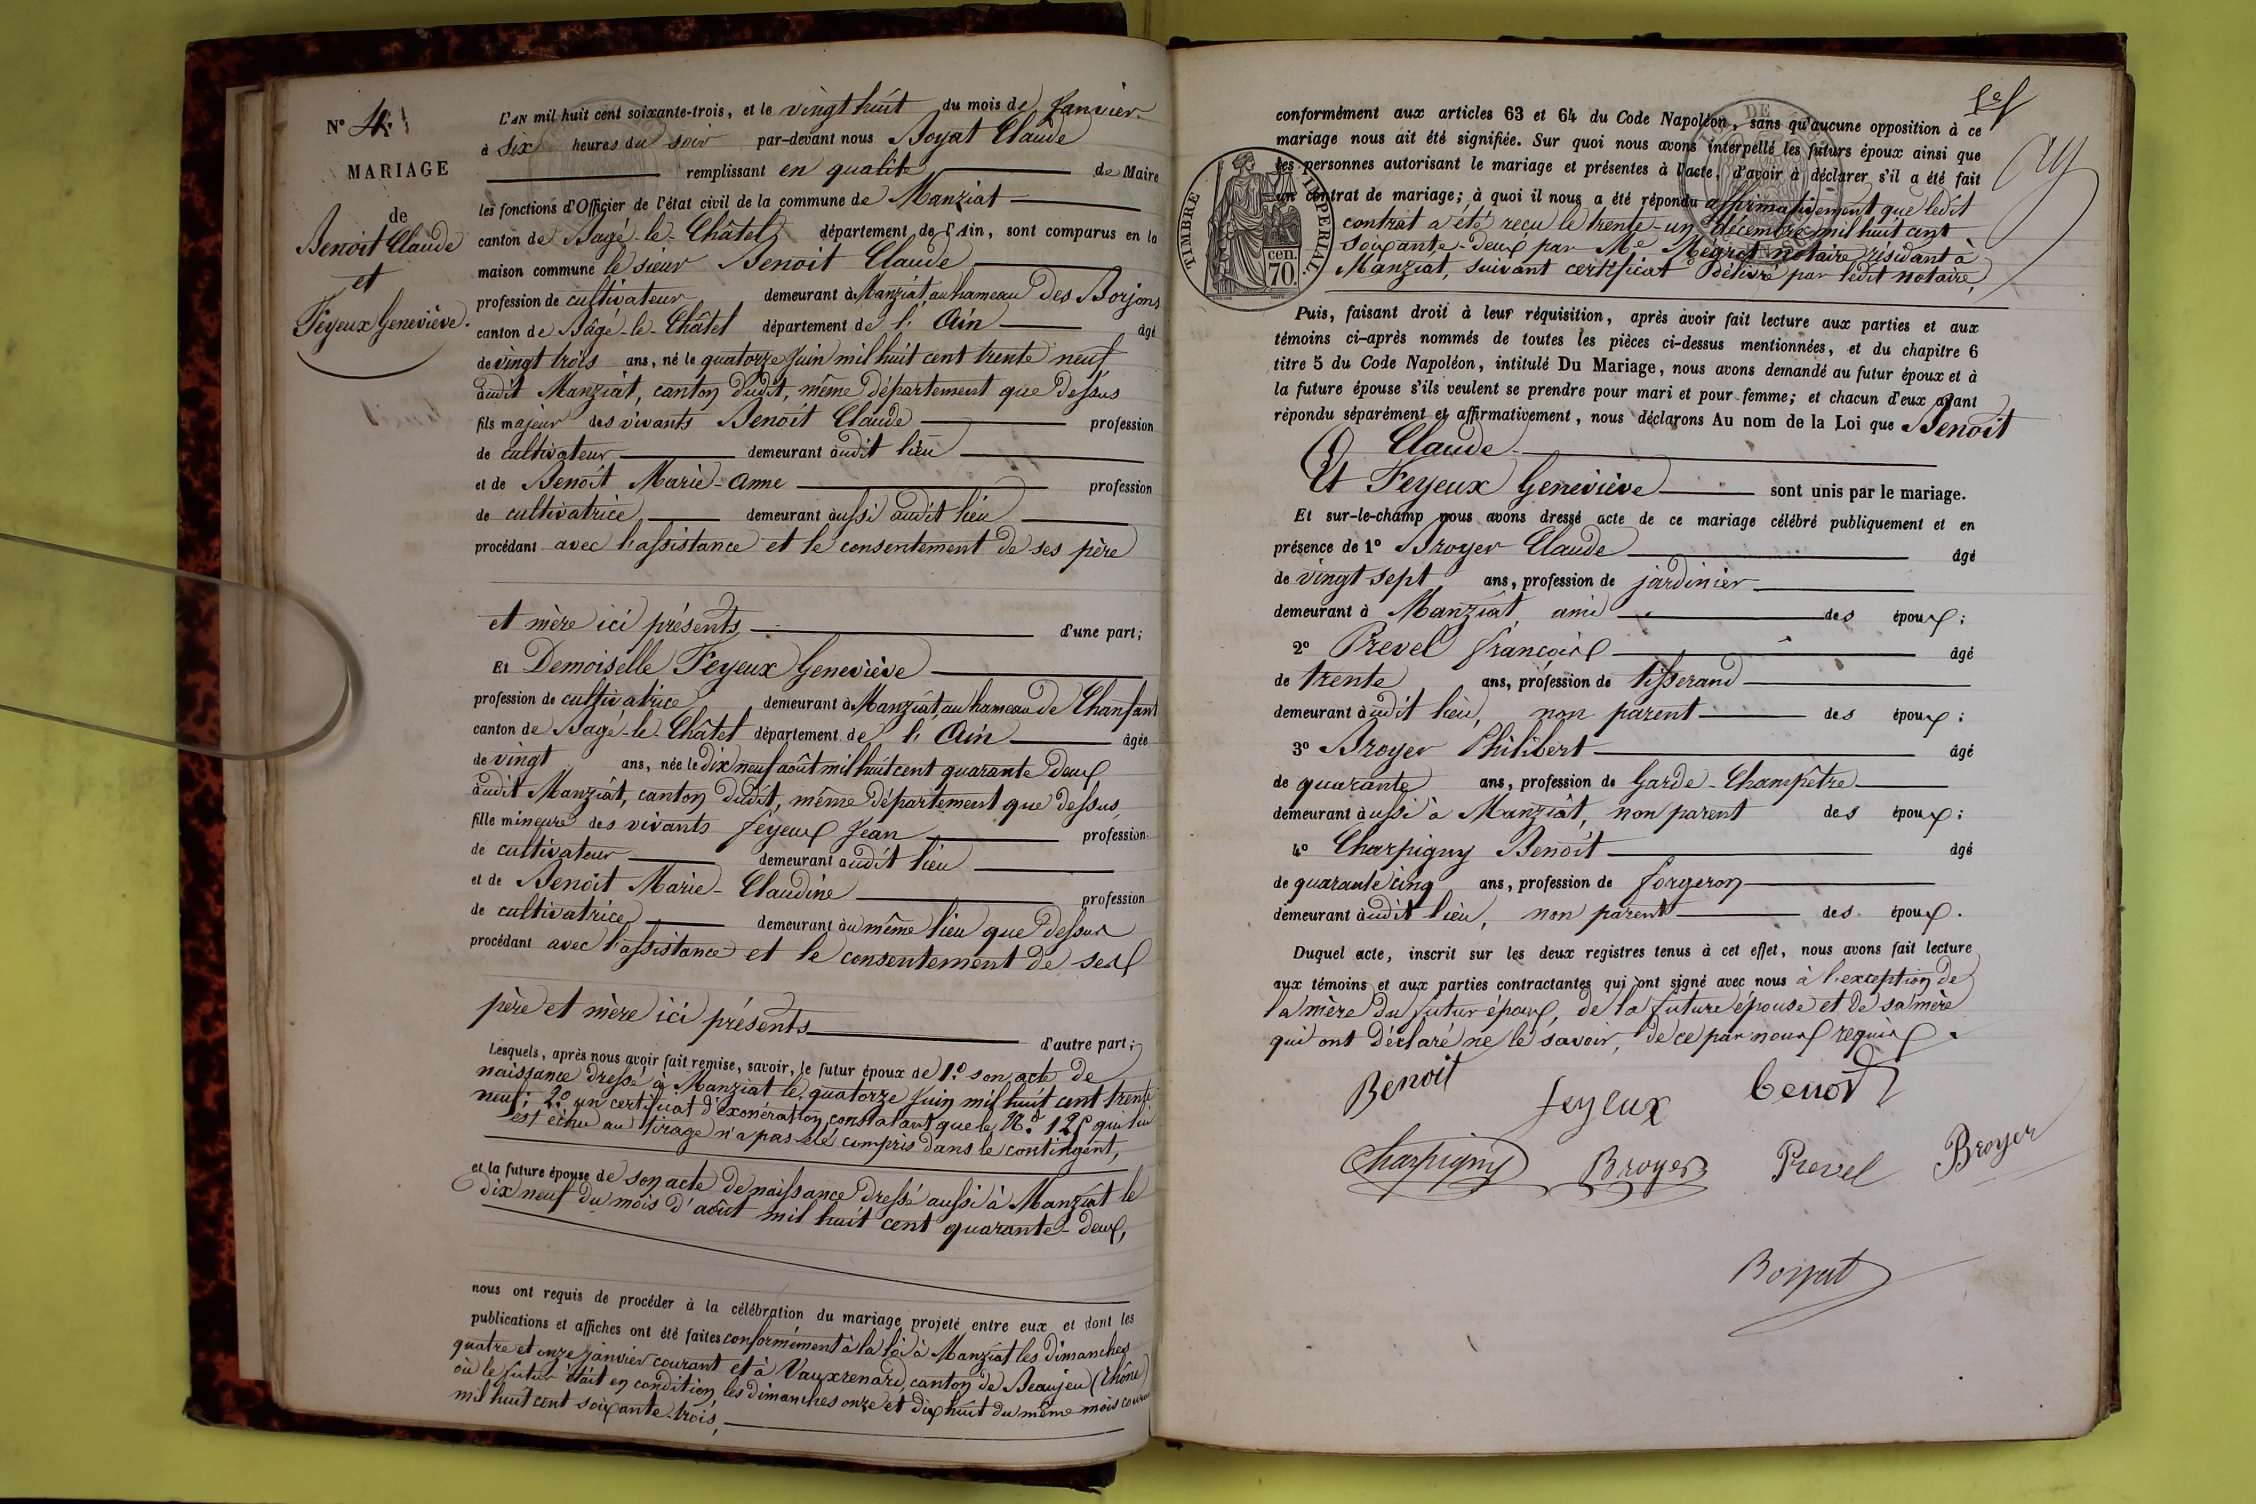 N° 4
MARIAGE
de
Benoit Claude
et
Feyeux Geneviève.
L'AN mil huit cent soixante-trois, et le vingt huit du mois de Janvier
à Six heures du soir par-devant nous Boyat Claude
remplissant en qualité de Maire
les fonctions d'Officier de l'état civil de la commune de Manziat
canton de Bagé-le-Châtel département de l'Ain, sont comparus en la
maison commune le sieur Benoit Claude
profession de cultivateur demeurant à Manziat, au hameau des Borjons
canton de Bâgé-le-Châtel département de l'Ain âgé
de vingt trois ans, né le quatorze Juin mil huit cent trente neuf
audit Manziat, canton dudit, même département que dessus
fils majeur des vivants Benoit Claude profession
de cultivateur demeurant audit lieu
et de Benoît Marie-Anne profession
de cultivatrice, demeurant aussi audit lieu
procédant avec l'assistance et le consentement de ses père
et mère ici présents d'une part;
Et Demoiselle Feyeux Geneviève
profession de cultivatrice demeurant à Manziat, au hameau de Chanfant
canton de Bagé-le-Châtel département de l'Ain âgée
de vingt ans, née le dix neuf août mil huit cent quarante deux
audit Manziat, canton dudit, même département que dessus,
fille mineure des vivants Feyeux Jean profession
de cultivateur demeurant audit lieu
et de Benoit Marie-Claudine profession
de cultivatrice demeurant au même lieu que dessus
procédant avec l'assistance et le consentement de ses
père et mère ici présents d'autre part;
Lesquels, après nous avoir fait remise, savoir, le futur époux de 1.° son acte de
naissance dressé à Manziat le quatorze Juin mil huit cent trente
neuf; 2.° un certificat d'exonération constatant que le N.° 125 qui lui
est échu au tirage n'a pas été compris dans le contingent,
et la future épouse de son acte de naissance dressé aussi à Manziat le
dix neuf du mois d'août mil huit cent quarante-deux,
nous ont requis de procéder à la célébration du mariage projeté entre eux et dont les
publications et affiches ont été faites conformément à la loi à Manziat les dimanches
quatre et onze janvier courant et à Vauxrenard, canton de Beaujeu (Rhône)
où le futur était en condition, les dimanches onze et dix huit du même mois courant
mil huit cent soixante-trois,
TIMBRE IMPERIAL
cen.
70.
conformément aux articles 63 et 64 du Code Napoléon, sans qu'aucune opposition à ce
mariage nous ait été signifiée. Sur quoi nous avons interpellé les futurs époux ainsi que
les personnes autorisant le mariage et présentes à l'acte, d'avoir à déclarer s'il a été fait
un contrat de mariage; à quoi il nous a été répondu affirmativement que ledit
contrat a été reçu le trente-un décembre mil huit cent
soixante-deux par Me Mégrat notaire résidant à
Manziat, suivant certificat délivré par ledit notaire,
Puis, faisant droit à leur réquisition, après avoir fait lecture aux parties et aux
témoins ci-après nommés de toutes les pièces ci-dessus mentionnées, et du chapitre 6
titre 5 du Code Napoléon, intitulé Du Mariage, nous avons demandé au futur époux et à
la future épouse s'ils veulent se prendre pour mari et pour femme; et chacun d'eux ayant
répondu séparément et affirmativement, nous déclarons Au nom de la Loi que Benoit
Claude
Et Feyeux Geneviève sont unis par le mariage.
Et sur-le-champ nous avons dressé acte de ce mariage célébré publiquement et en
présence de 1° Broyer Claude âgé
de vingt sept ans, profession de jardinier
demeurant à Manziat, ami des époux;
2° Prevel françois âgé
de trente ans, profession de tisserand
demeurant audit lieu, non parent des époux;
3° Broyer Philibert âgé
de quarante ans, profession de Garde-Champêtre
demeurant aussi à Manziat, non parent des époux;
4° Charpigny Benoît âgé
de quarante cinq ans, profession de forgeron
demeurant audit lieu, non parent des époux.
Duquel acte, inscrit sur les deux registres tenus à cet effet, nous avons fait lecture
aux témoins et aux parties contractantes qui ont signé avec nous à l'exception de
la mère du futur époux, de la future épouse et de sa mère
qui ont déclaré ne le savoir, de ce par nous requis.
Benoit feyeux benoit
Charpigny Broyer Prevel Broyer
Boyat